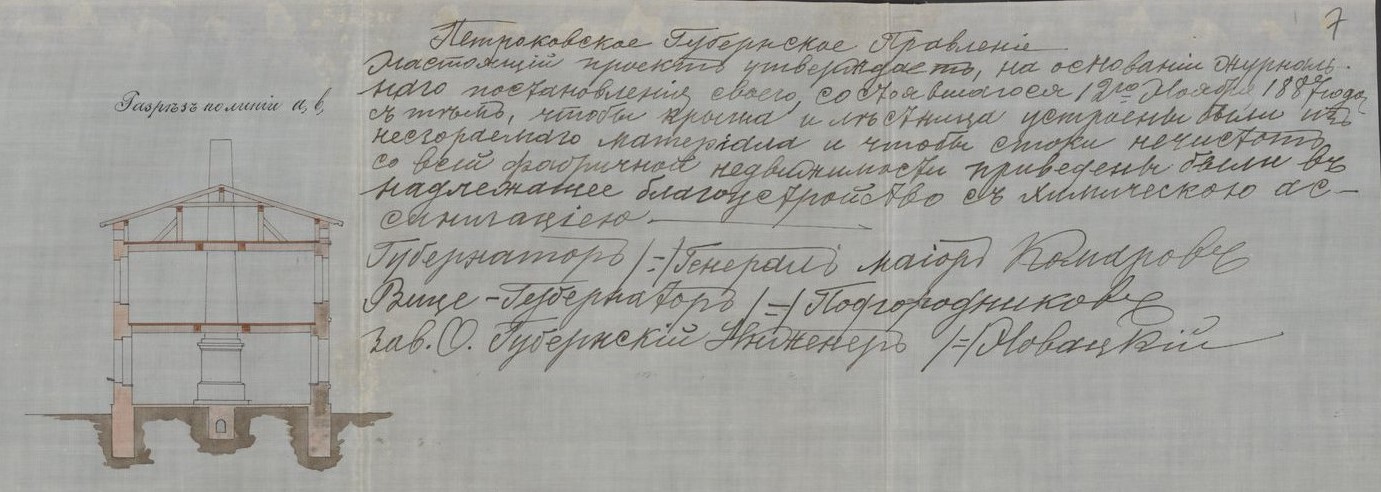 7
Петроковское Губернское Правленіе
Настоящій проектъ утверждаетъ, на основаніи журналь-
наго постановленія своего, состоявшагося 12го Ноября 1887 года,
съ тѣмъ, чтобы крыша и лѣстница устроены были изъ
несгораемаго матеріала и чтобы стоки нечистотъ
со всей фабричной недвижимости приведены были въ
надлежащее благоустройство съ химическою ас-
синизаціею.
Губернаторъ /-/ Генералъ маіоръ Комаровъ
Вице-Губернаторъ /-/ Подгородниковъ
Зав. О. Губернскій Инженеръ /-/ Новацкій
Разрѣзъ по линіи a, b,